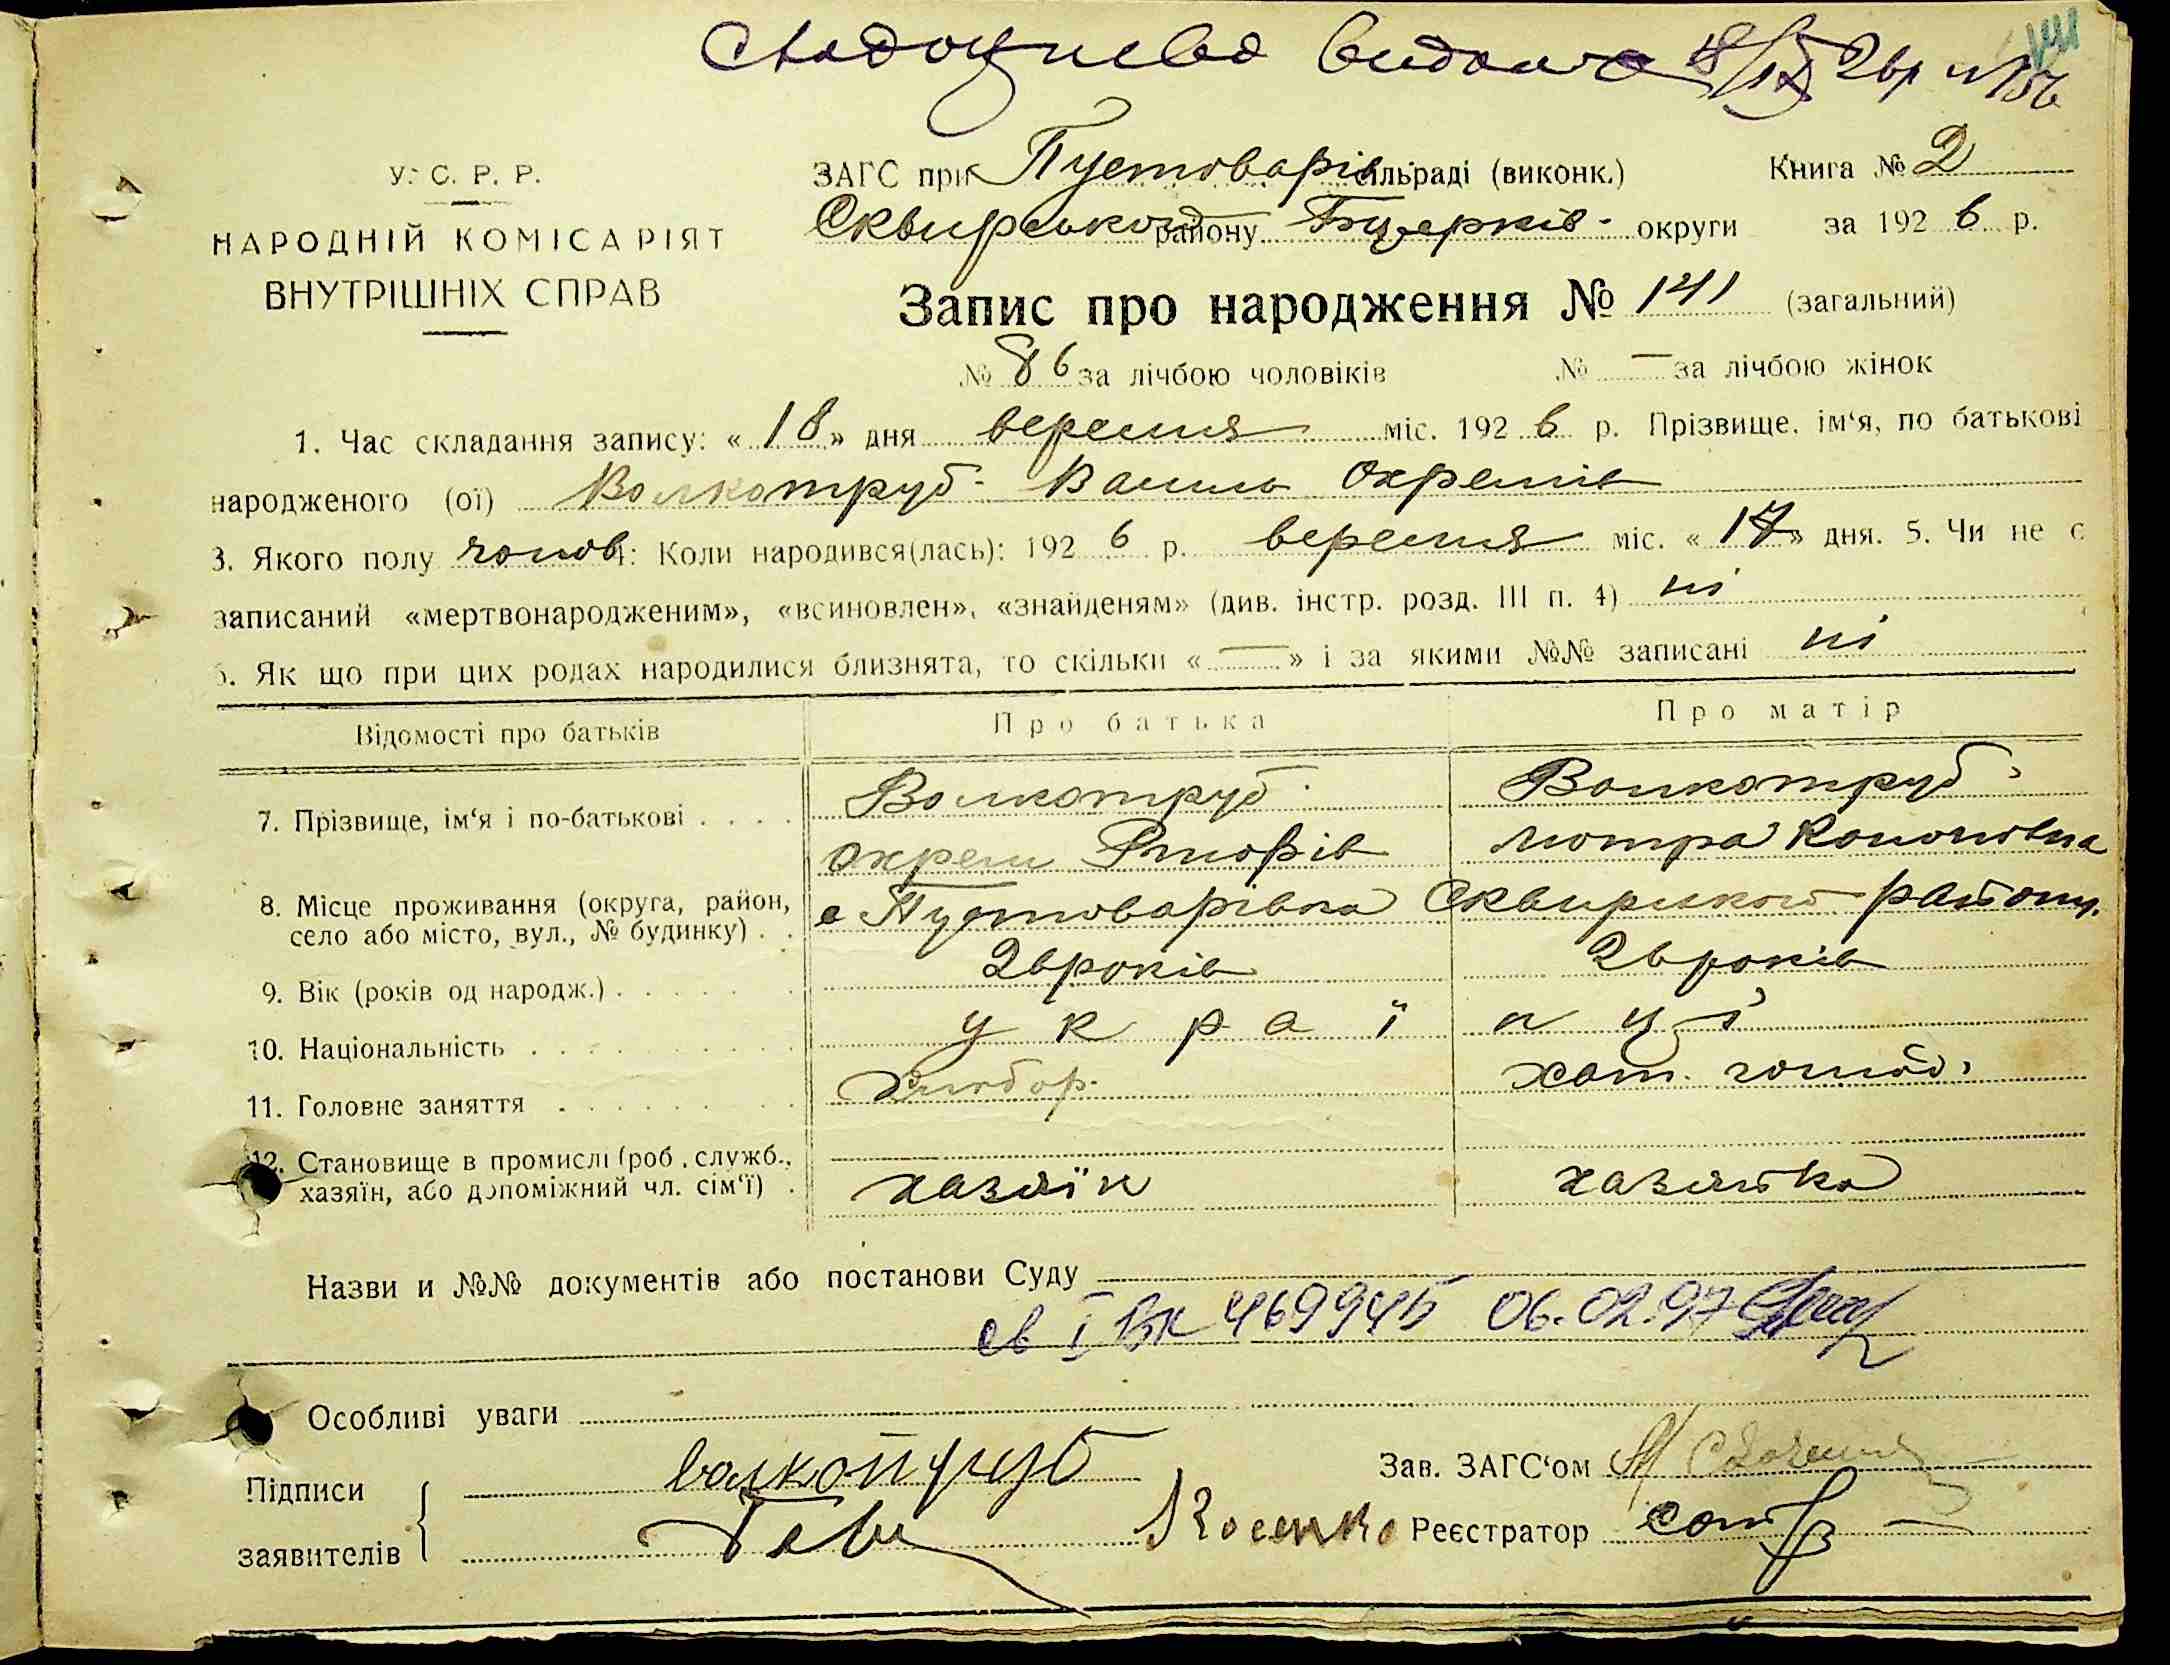 видано 18/IX 26р
141
У. С. Р. Р.
НАРОДНІЙ КОМІСАРІЯТ
ВНУТРІШНІХ СПРАВ
ЗАГС при Пустоварів сільраді (виконк.) Книга № 2
Сквирсько району Бцерків- округи за 192 6 р.
Запис про народження № 141 (загальний)
№ 86 за лічбою чоловіків № — за лічбою жінок
1. Час складання запису: « 18 » дня вересня міс. 192 6 р. Прізвище, ім‘я, по батькові
народженого (ої) Волкотруб- Василь Охремів
3. Якого полу чолов 4: Коли народився(лась): 192 6 р. вересня міс. « 17 » дня. 5. Чи не є
записаний «мертвонародженим», «всиновлен», «знайденям» (див. інстр. розд. III п. 4) ні
6. Як що при цих родах народилися близнята, то скільки « — » і за якими №№ записані ні
Відомості про батьків Про батька Про матір
7. Прізвище, ім‘я і по-батькові . . . . Волкотруб Волкотруб
Охрем Мотра Кононовна
8. Місце проживання (округа, район, с Пустоварівка Сквирського району.
село або місто, вул., № будинку) . .
9. Вік (років од народж.) . . . . . . 26 років 26 років
10. Національність . . . . . . . . . . українці
11. Головне заняття . . . . . . . . . хлібор. хат. господ.
12. Становище в промислі (роб., служб.,
хазяїн, або допоміжний чл. сім‘ї) . хазяїн хазяйка
Назви и №№ документів або постанови Суду
св I БК 469945 06.02.97
Особливі уваги
Підписи волкотруб Зав. ЗАГС‘ом
заявителів Косенко Реєстратор